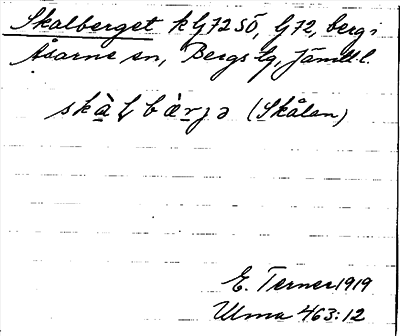 Skalberget k G72SÖ, G72, berg i
Åsarne sn, Bergs tg, Jämtl. l.
(Skålan)
E. Terner 1919
Ulma 463:12